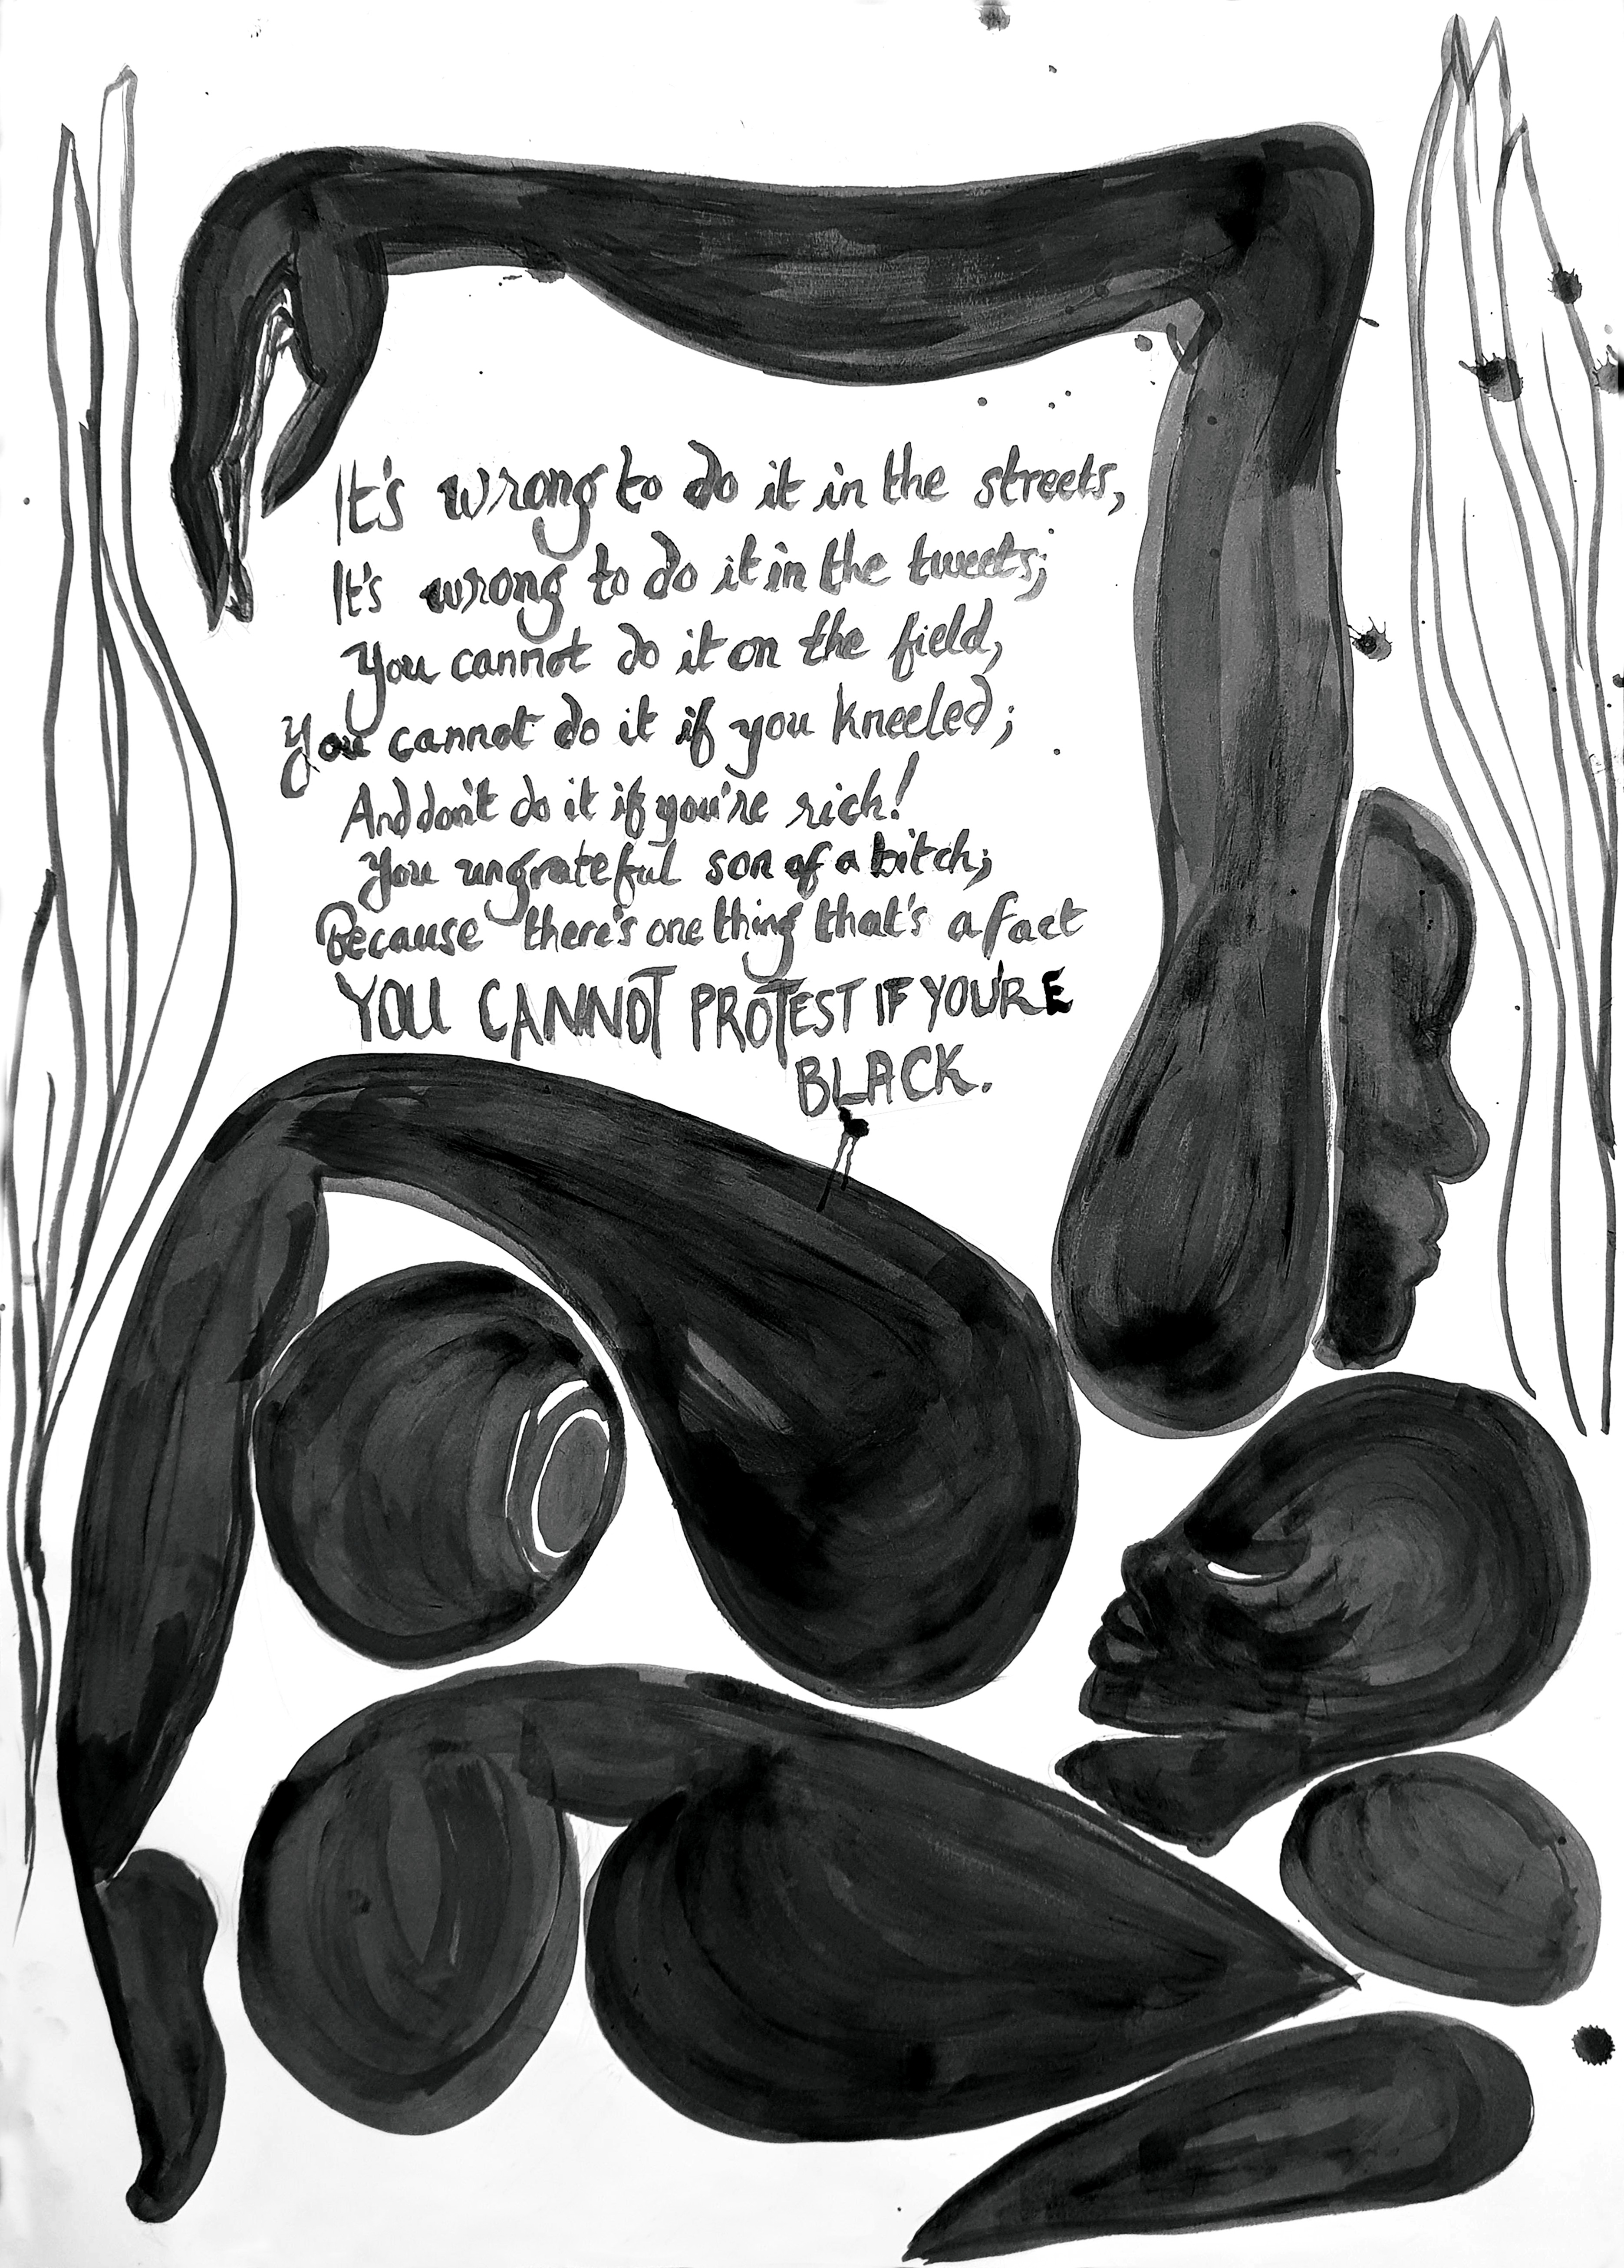 It's wrong to do it in the streets,
It's wrong to do it in the tweets;
You cannot do it on the field,
You cannot do it if you kneeled;
And don't do it if you're rich!
You ungrateful son of a bitch;
Because there's one thing that's a fact
YOU CANNOT PROTEST IF YOU'RE
BLACK.